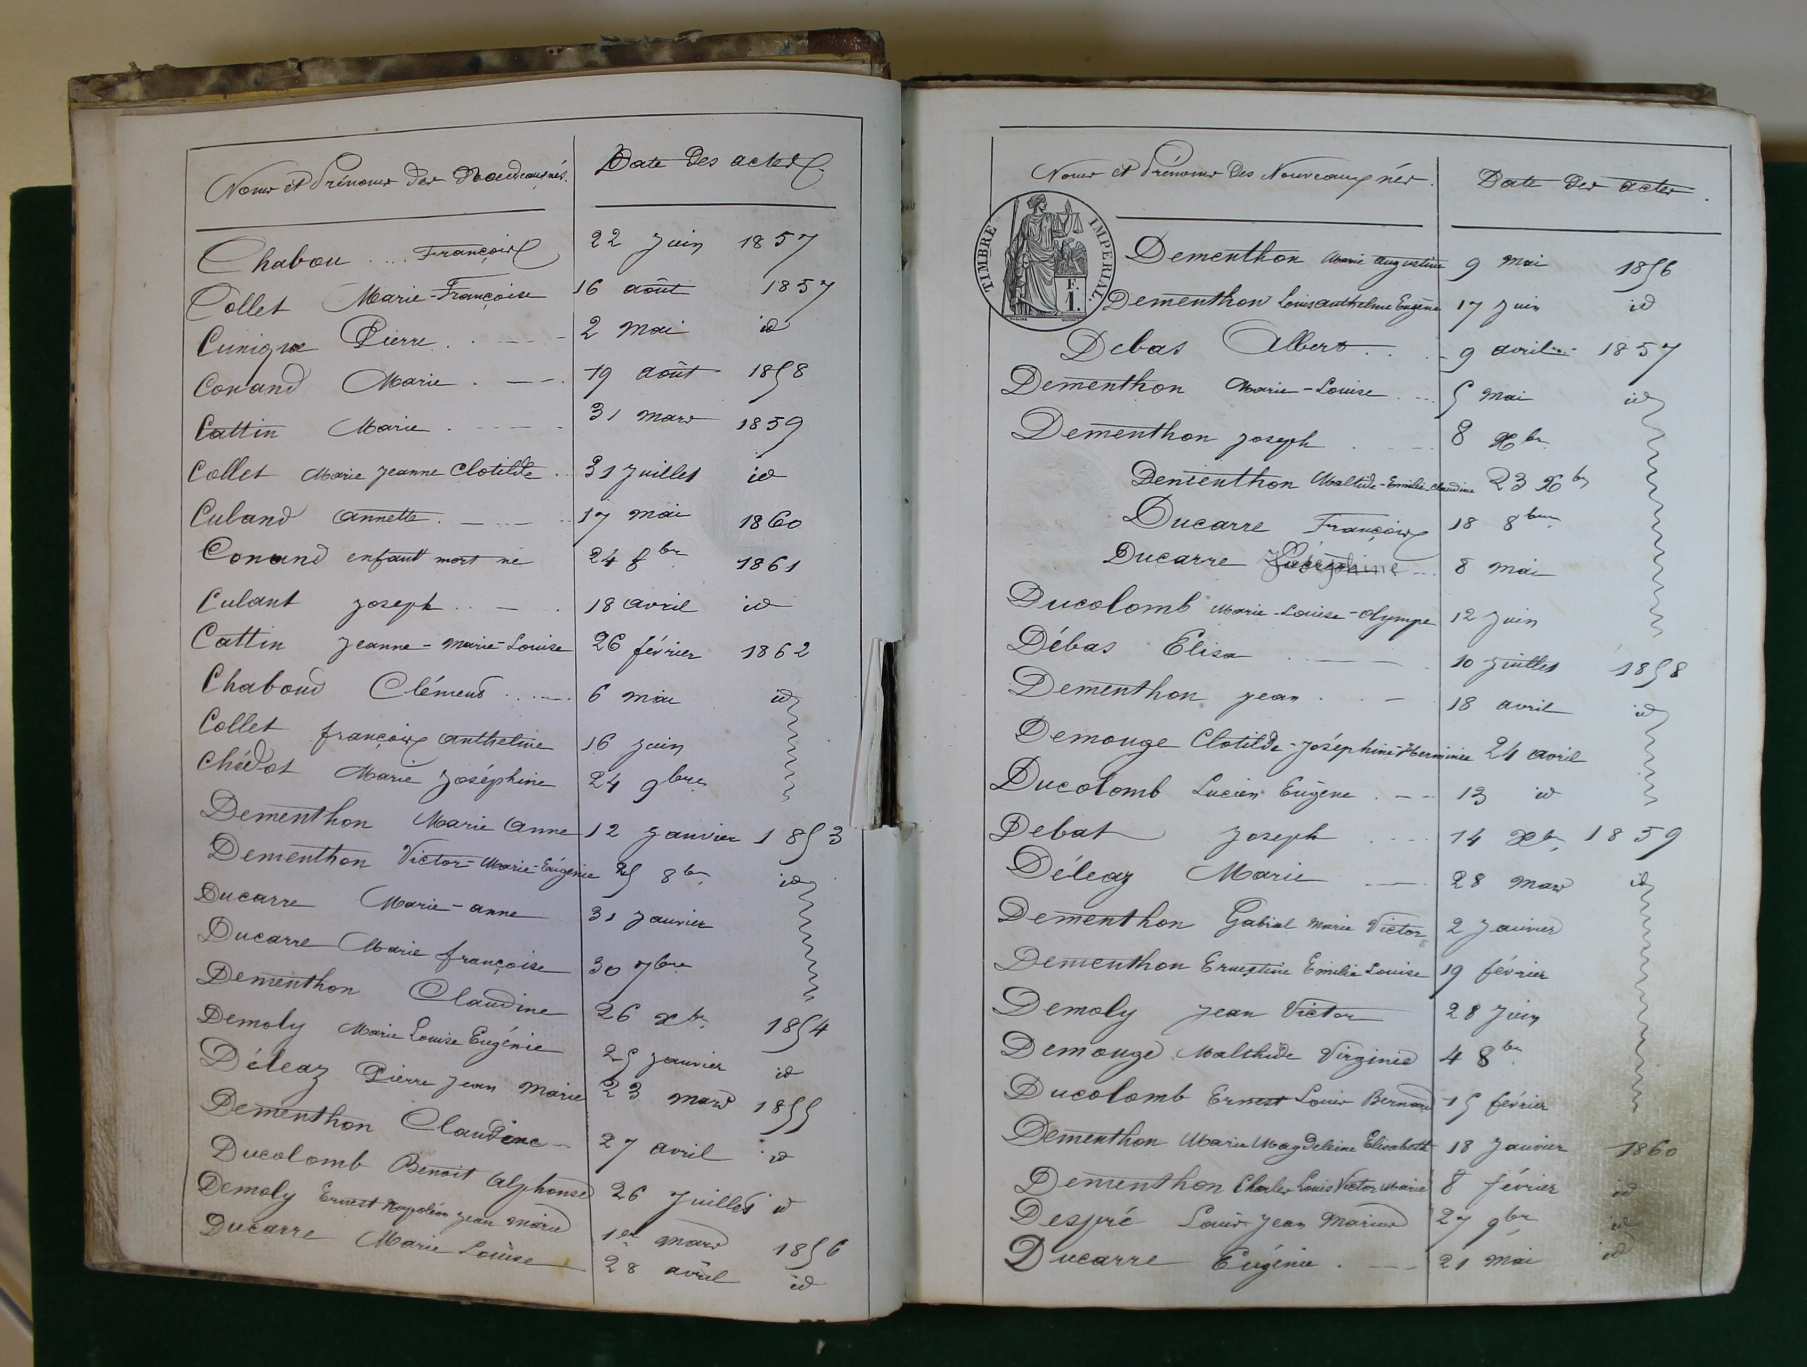 Noms et Prénoms des Nouveaux nés. Date des actes
Chabou .... François 22 Juin 1857
Collet Marie-Françoise 16 août 1857
Pierre 2 mai id
Conand Marie 19 août 1858
Cattin Marie 31 mars 1859
Collet Marie Jeanne Clotilde 31 Juillet id
Culand annette 17 mai 1860
Conand enfant mort né 24 8bre 1861
Culant Joseph 18 avril id
Cattin Jeanne-Marie-Louise 26 février 1862
Chaboud Clément 6 mai id
Collet françois anthelme 16 juin
Chédot Marie Joséphine 24 9bre
Dementhon Marie Anne 12 Janvier 1853
Dementhon Victor-Marie-Eugénie 25 8bre id
Ducarre Marie-anne 31 Janvier
Ducarre Marie françoise 30 7bre
Dementhon Claudine 26 Xbre 1854
Demoly Marie Louise Eugénie 25 Janvier id
Déleaz Pierre Jean Marie 23 mars 1855
Dementhon Claudine 27 avril id
Ducolomb Benoit Alphonse 26 Juillet id
Demoly Ernest Napoléon Jean Marie 1er mars 1856
Ducarre Marie Louise 28 avril id
Noms et Prénoms des Nouveaux nés. Date des actes.
TIMBRE IMPERIAL.
1 F.
Dementhon Marie augustine 9 mai 1856
Dementhon Louis anthelme Eugène 17 Juin id
Debas Albert 9 avril 1857
Dementhon Marie-Louise 5 mai id
Dementhon Joseph 8 Xbre
Dementhon Maltide-Emilie-Claudine 23 Xbre
Ducarre François 18 8bre
Ducarre 8 mai
Ducolomb Marie-Louise-Olympe 12 Juin
Débas Elisa 10 Juillet 1858
Dementhon Jean 18 avril id
Demouge Clotilde-Joséphine-Herminie 24 avril
Ducolomb Lucien Eugène 13 id
Debat Joseph 14 Xbre 1859
Déleaz Marie 28 mars id
Dementhon Gabriel Marie Victor 2 Janvier
Dementhon Ernestine Emilie Louise 19 février
Demoly Jean Victor 28 Juin
Demouge Malthide Virginie 4 8bre
Ducolomb Ernest Louis Bernard 15 février
Dementhon Marie Magdeleine Elisabeth 18 Janvier 1860
Dementhon Charles Louis Victor Marie 8 février id
Despré Louis Jean Marius 27 9bre id
Ducarre Eugénie 21 Mai id